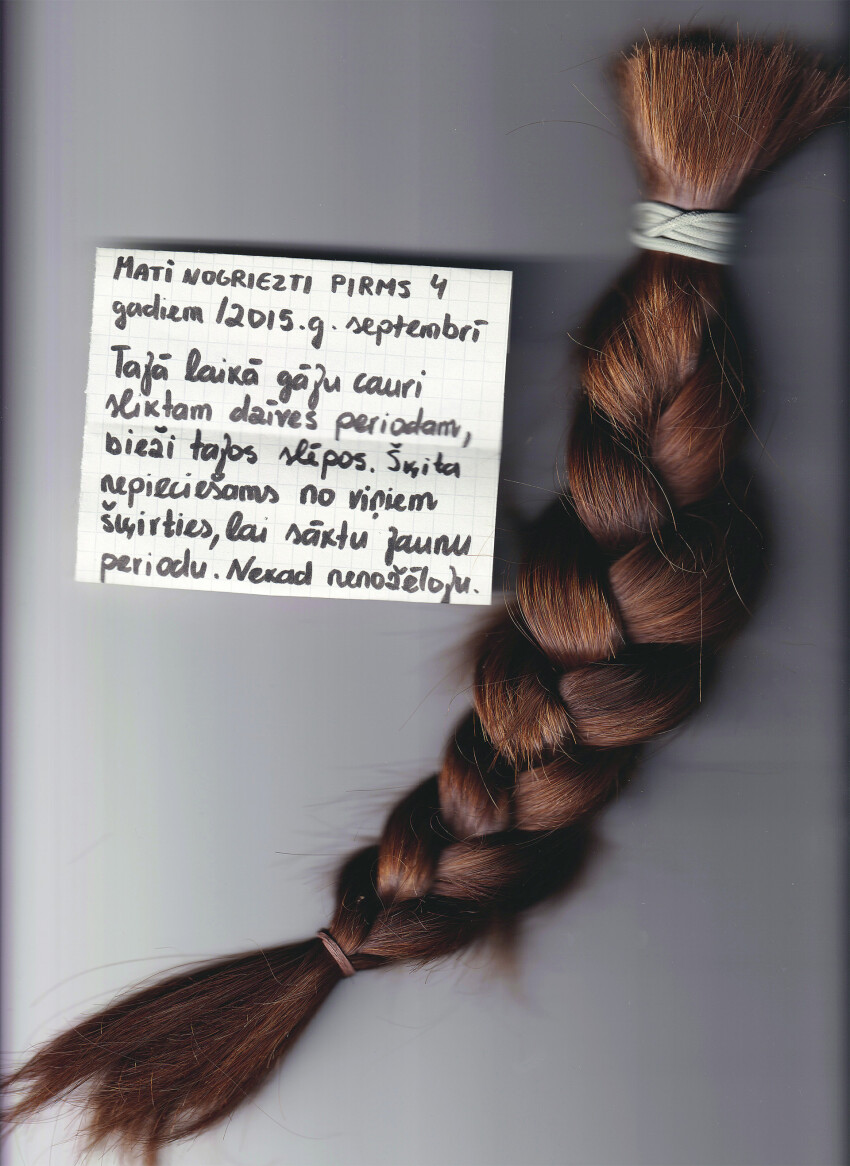 MATI NOGRIEZTI PIRMS 4
gadiem /2015.g. septembrī
Tajā laikā gāju cauri
sliktam dzīves periodam,
bieži tajos slēpos. Šķita
nepieciešams no viņiem
šķirties, lai sāktu jaunu
periodu. Nekad nenožēloju.